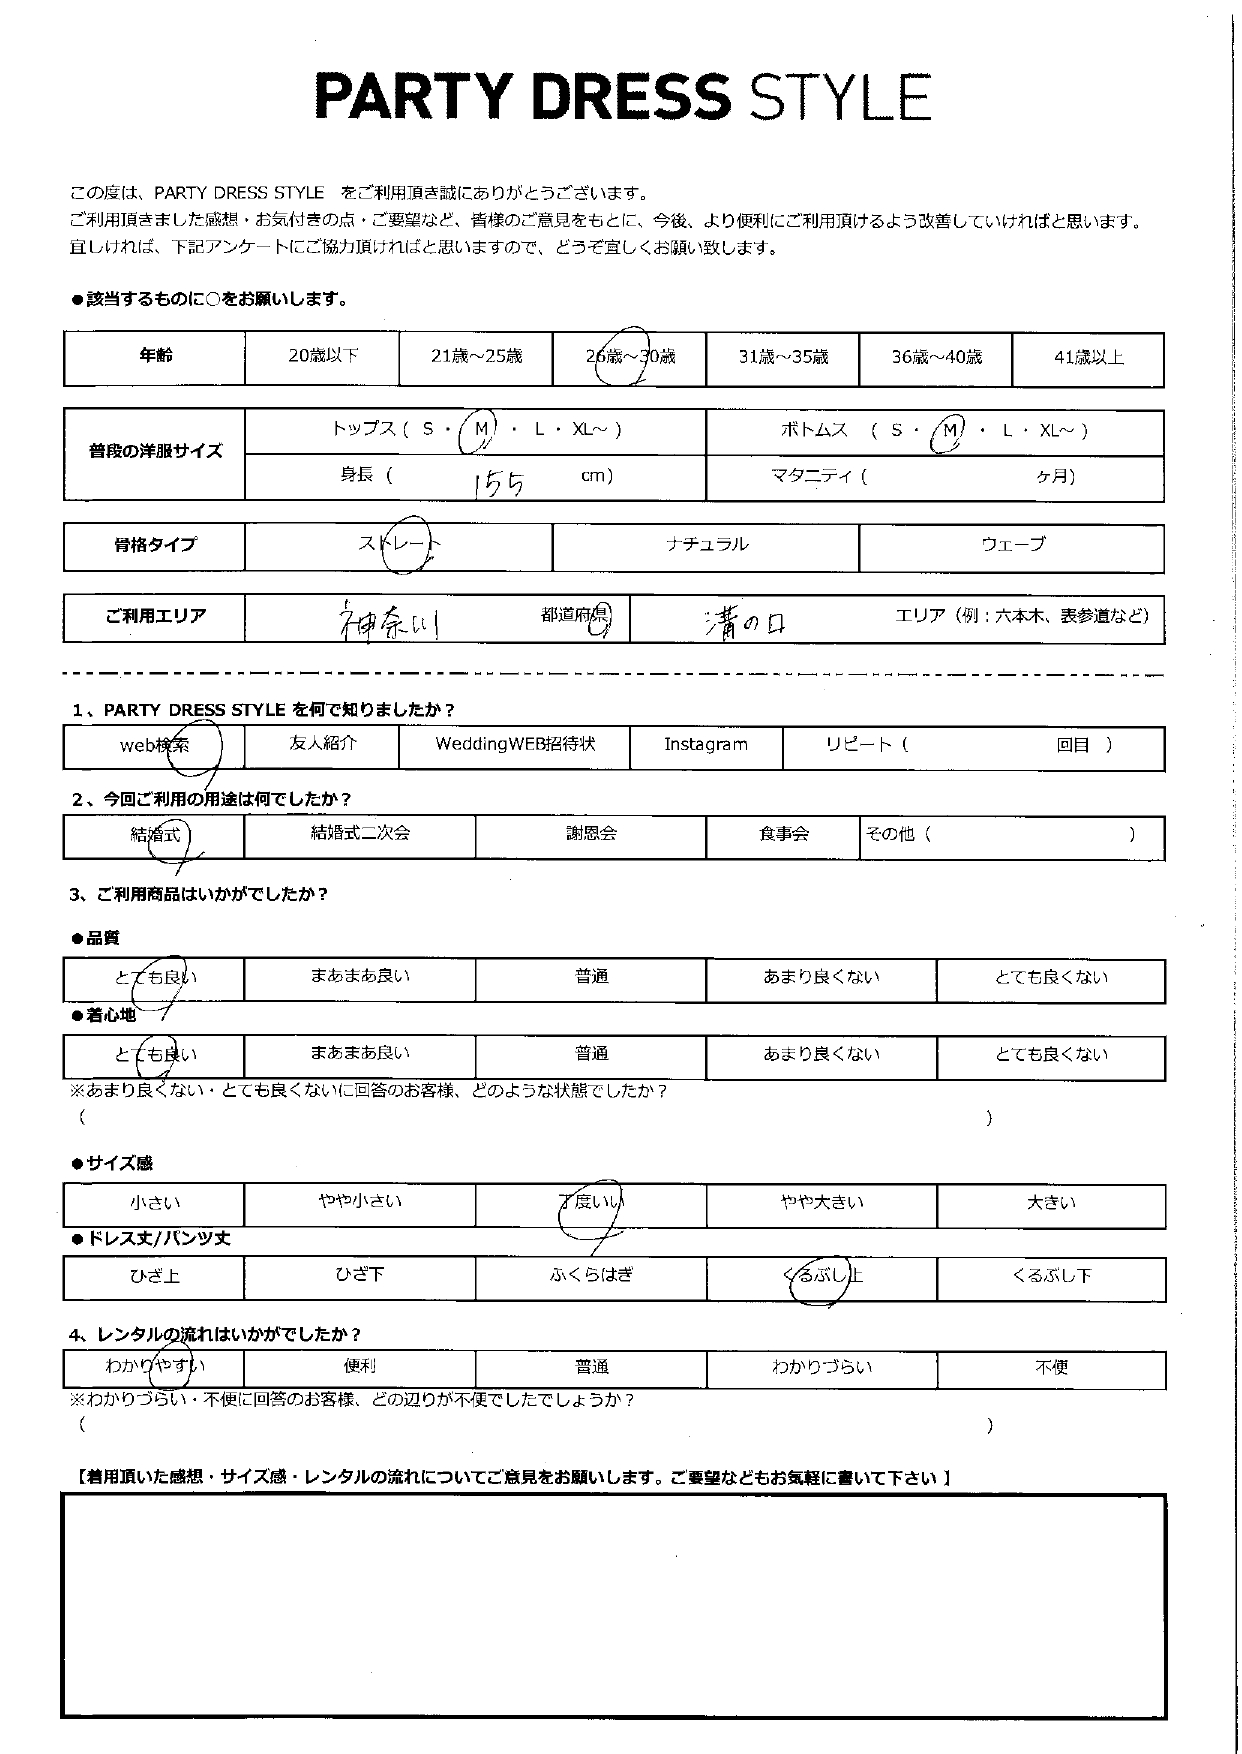 PARTY DRESS STYLE
この度は、PARTY DRESS STYLE をご利用頂き誠にありがとうございます。
ご利用頂きました感想・お気付きの点・ご要望など、皆様のご意見をもとに、今後、より便利にご利用頂けるよう改善していければと思います。
宜しければ、下記アンケートにご協力頂ければと思いますので、どうぞ宜しくお願い致します。
●該当するものに○をお願いします。
年齢 20歳以下 21歳～25歳 26歳～30歳 31歳～35歳 36歳～40歳 41歳以上
普段の洋服サイズ トップス ( S ・ M ・ L ・ XL～ ) ボトムス ( S ・ M ・ L ・ XL～ )
身長 ( 155 cm) マタニティ ( ヶ月)
骨格タイプ ストレート ナチュラル ウェーブ
ご利用エリア 神奈川 都道府県 溝の口 エリア（例：六本木、表参道など）
1、PARTY DRESS STYLE を何で知りましたか？
web検索 友人紹介 WeddingWEB招待状 Instagram リピート ( 回目 )
2、今回ご利用の用途は何でしたか？
結婚式 結婚式二次会 謝恩会 食事会 その他 ( )
3、ご利用商品はいかがでしたか？
●品質
とても良い まあまあ良い 普通 あまり良くない とても良くない
●着心地
とても良い まあまあ良い 普通 あまり良くない とても良くない
※あまり良くない・とても良くないに回答のお客様、どのような状態でしたか？
( )
●サイズ感
小さい やや小さい 丁度いい やや大きい 大きい
●ドレス丈/パンツ丈
ひざ上 ひざ下 ふくらはぎ くるぶし上 くるぶし下
4、レンタルの流れはいかがでしたか？
わかりやすい 便利 普通 わかりづらい 不便
※わかりづらい・不便に回答のお客様、どの辺りが不便でしたでしょうか？
( )
【着用頂いた感想・サイズ感・レンタルの流れについてご意見をお願いします。ご要望などもお気軽に書いて下さい 】